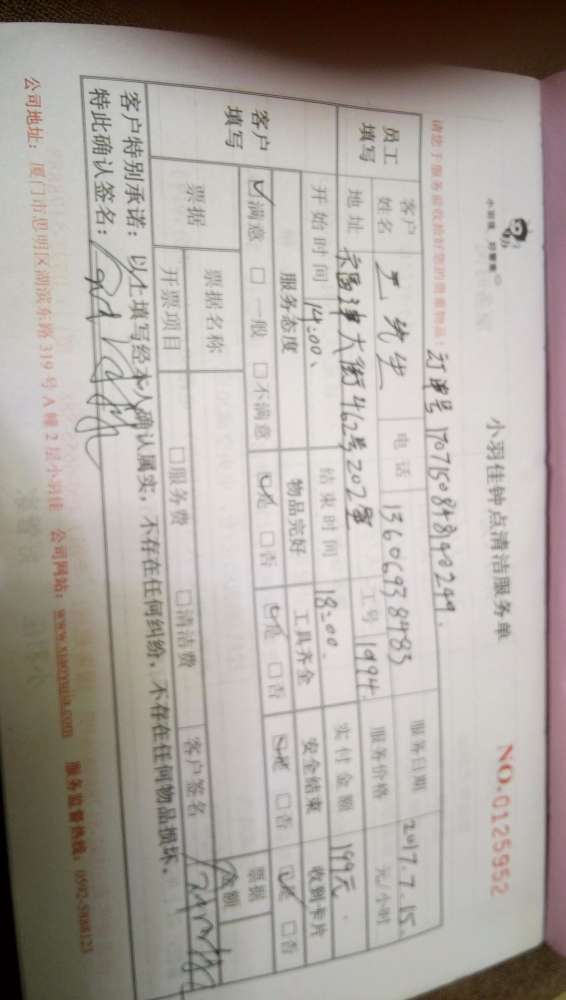 小羽佳 邓爹爹
小羽佳钟点清洁服务单
NO.0125952
请您于服务验收前好您的贵重物品！
订单号
员工填写
客户姓名
王先生
电话
13606938483
服务日期
2017.7.15.
地址
大街462号202室
工号
1994.
服务价格
元/小时
开始时间
14:00、
结束时间
18:00.
实付金额
199元.
客户填写
服务态度
物品完好
工具齐全
安全结束
收到卡片
☑满意 □一般 □不满意
☑是 □否
☑是 □否
☑是 □否
☑是 □否
票据
票据名称
票据金额
开票项目
□服务费
□清洁费
客户签名
客户特别承诺：以上填写经本人确认属实，不存在任何纠纷，不存在任何物品损坏。
特此确认签名：
公司地址：厦门市思明区湖滨东路319号A幢2层小羽佳 公司网站：www.xiaoyujia.com 服务监督热线：0592-5888121